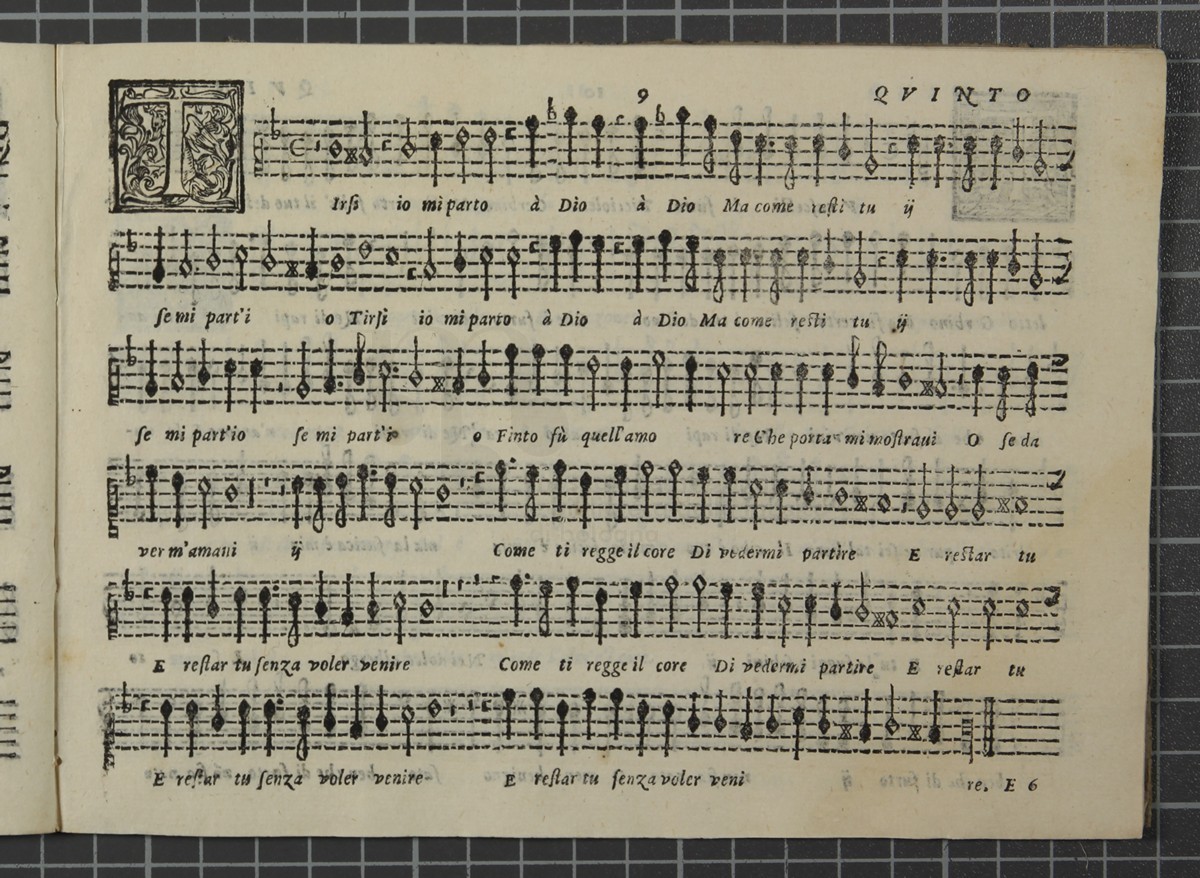 9 QVINTO
TIrsi io mi parto à Dio à Dio Ma come resti tu ij
se mi part'i o Tirsi io mi parto à Dio à Dio Ma come resti tu ij
se mi part'io se mi part'i o Finto fù quell'amo re Che porta mi mostraui O se da
ver m'amaui ij Come ti regge il core Di vedermi partire E restar tu
E restar tu senza voler venire Come ti regge il core Di vedermi partire E restar tu
E restar tu senza voler venire E restar tu senza voler veni ij re. E 6